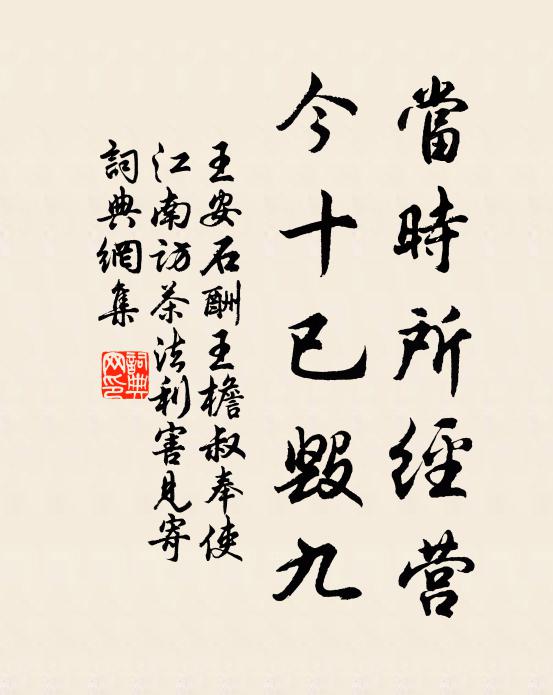 當時所經营
今十已毀九
王安石酬王檐叔奉使
江南访茶法利害見寄
詞典網集
詞典网印